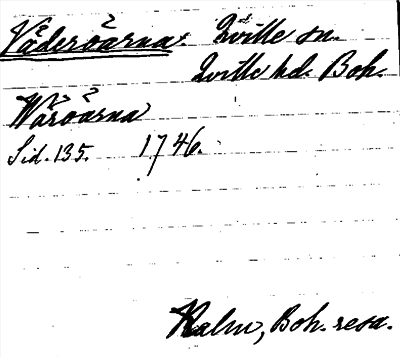 Väderöarna: Qville sn.
Qville hd. Boh.
Wäröarna
Sid. 135. 1746.
Kalm, Boh. resa.